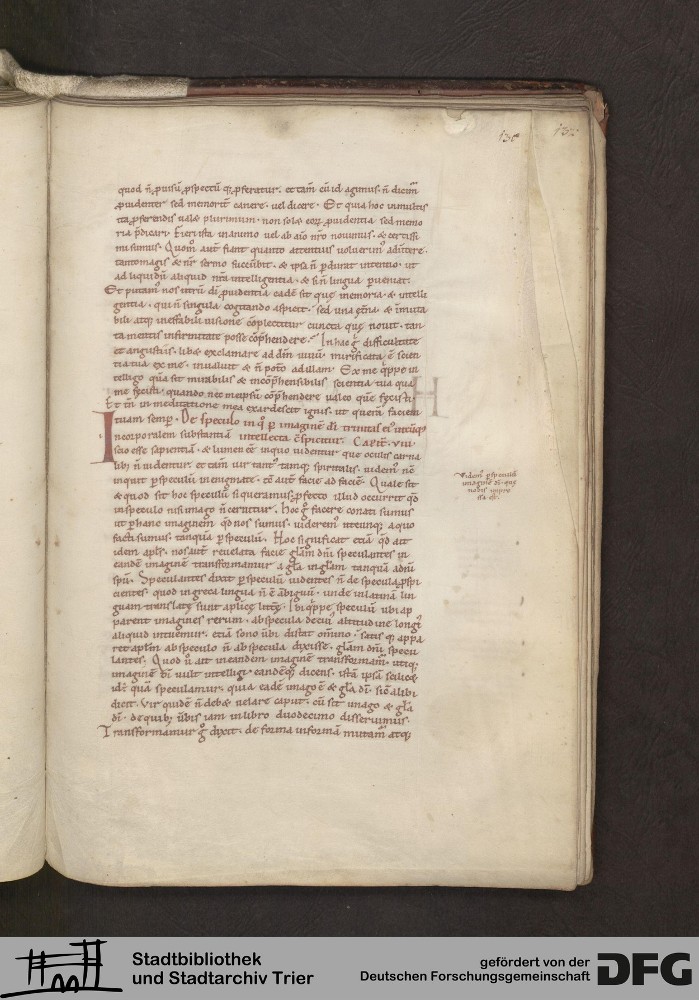 131
132
quod ñ ꝓuisū ꝓspectū qꝫ ꝓferatur. et tam̄ cū id agimus. ñ dicim̄
ꝓuidenter sed memorit̄ canere. uel dicere. Et quia hoc in multis
ita ꝓferendis ualꝫ plurimum. non sole eorꝫ ꝓuidentia sed memo
ria p̄dicari. Fieri ista in animo uel ab aīo nr̄o nouimus. & certissi
mi sumus. Quom̄ aut̄ fiant quanto attentius voluerim̄ aduertere.
tantomagis & nr̄ sermo succūbit. & ipsa ñ ꝑdurat intentio. ut
ad liquidū aliquid nr̄a intelligentia. & si ñ lingua ꝑueniat.
Et putam̄ nos utrū dī ꝓuidentia eadē sit que memoria. & intelli
gentia. qui ñ singula cogitando aspicit. sed una et̄na. & im̄uta
bili atqꝫ ineffabili uisione cōplectitur cuncta que nouit. tan
ta mentis infirmitate posse cōp̄hendere. In hac ḡ difficultate
et angustiis. libꝫ exclamare ad dm̄ uiuū. mirificata ē scien
tia tua ex me. inualuit & ñ poto ad illam. Ex me q̄ppe in
telligo quā sit mirabilis & incōp̄hensibilis scientia tua qua
me fecisti. quando nec meipsū cōp̄hendere ualeo que fecisti.
Et tn̄ in meditatione mea exardescit ignis. ut querā faciem
tuam semp̄. De speculo in q̊ ꝑ imaginē dī trinitas ei utcūqꝫ
Incorporalem substantiā intellecta cspicitur. Capit. viii
scio esse sapientiā. & lumen eē in quo uidentur que oculis carna
libꝫ ñ uidentur. et tam̄ uir tant̄ tamqꝫ spiritalis. uidem̄ nc̄
inquit ꝑ speculū in enigmate. tc̄ aut̄ facie ad faciē. Quale sit
& quod sit hoc speculū si queramus. ꝓfecto illud occurrit qd̄
in speculo nisi imago ñ cernitur. Hoc ḡ facere conati sumus
ut ꝑ hanc imaginem qd̄ nos sumus. uiderem̄ utcunqꝫ a quo
facti sumus. tanquā ꝑ speculū. Hoc significat etiā qd̄ ait
idem apl̄s. nos aut̄ reuelata facie glām dn̄i speculantes in
eandē imaginē transformamur a glā in glam tanquā a dn̄i
spū. Speculantes dixit ꝑ speculū uidentes ñ de specula ꝓspi
cientes. quod in greca lingua ñ ē ābiguū. unde in latinā lin
guam translatę sunt aplice littę. Ibi q̄ppe speculū ubi ap
parent imagines rerum. ab specula de cui᷒ altitudine longi᷒
aliquid intuemur. etiā sono ūbi distat omīno. satis qꝫ appa
ret aplm̄ ab speculo ñ ab specula dixisse. glām dn̄i specu
lantes. Quod ū ait in eandem imaginē transformam̄. utiqꝫ
imaginē dī uult intelligi. eandēqꝫ dicens. istā ipsā scilicꝫ
idē quā speculamur. quia eadē imago ē & glā dī. sic̄ alibi
dicit. Vir quidē ñ debꝫ uelare caput. cū sit imago & glā
dī. de quibꝫ ūbis iam in libro duodecimo disseruimus.
Transformamur ḡ dixit. de forma in formā mutam̄ atqꝫ
Videm̄ ꝑ speculū
imaginē dī. que
nobis impre
ssa est.
Stadtbibliothek
und Stadtarchiv Trier
gefördert von der
Deutschen Forschungsgemeinschaft
DFG